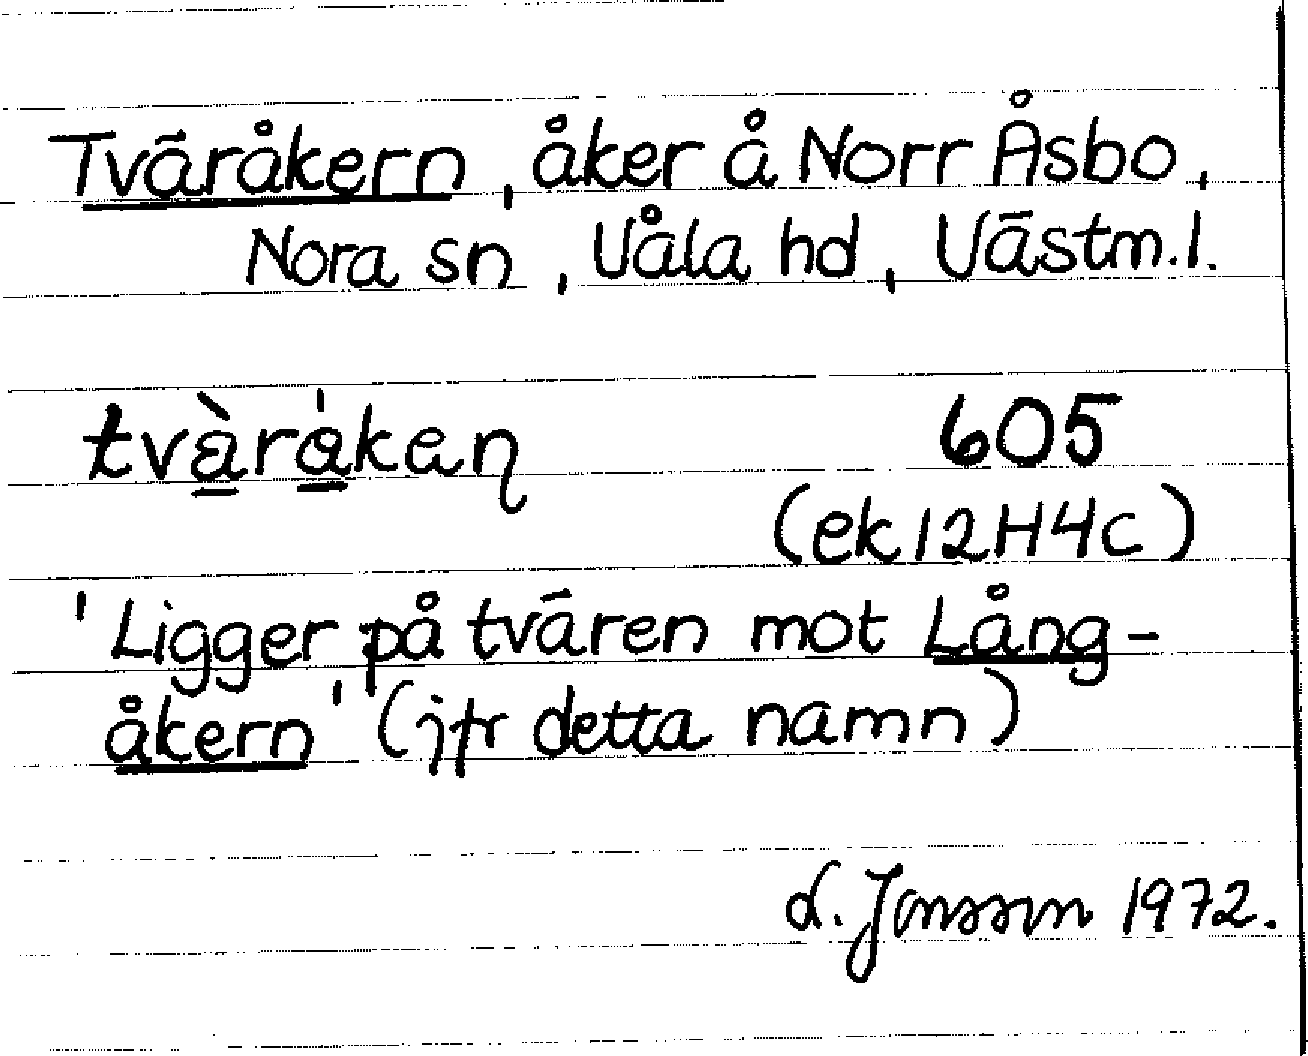 Tväråkern, åker å Norr Åsbo,
Nora sn, Våla hd, Västm.l.
tvàr̀åkaɳ 605
(ek 12H4c)
'Ligger på tvären mot Lång-
åkern' (jfr detta namn)
d. Jonsson 1972.